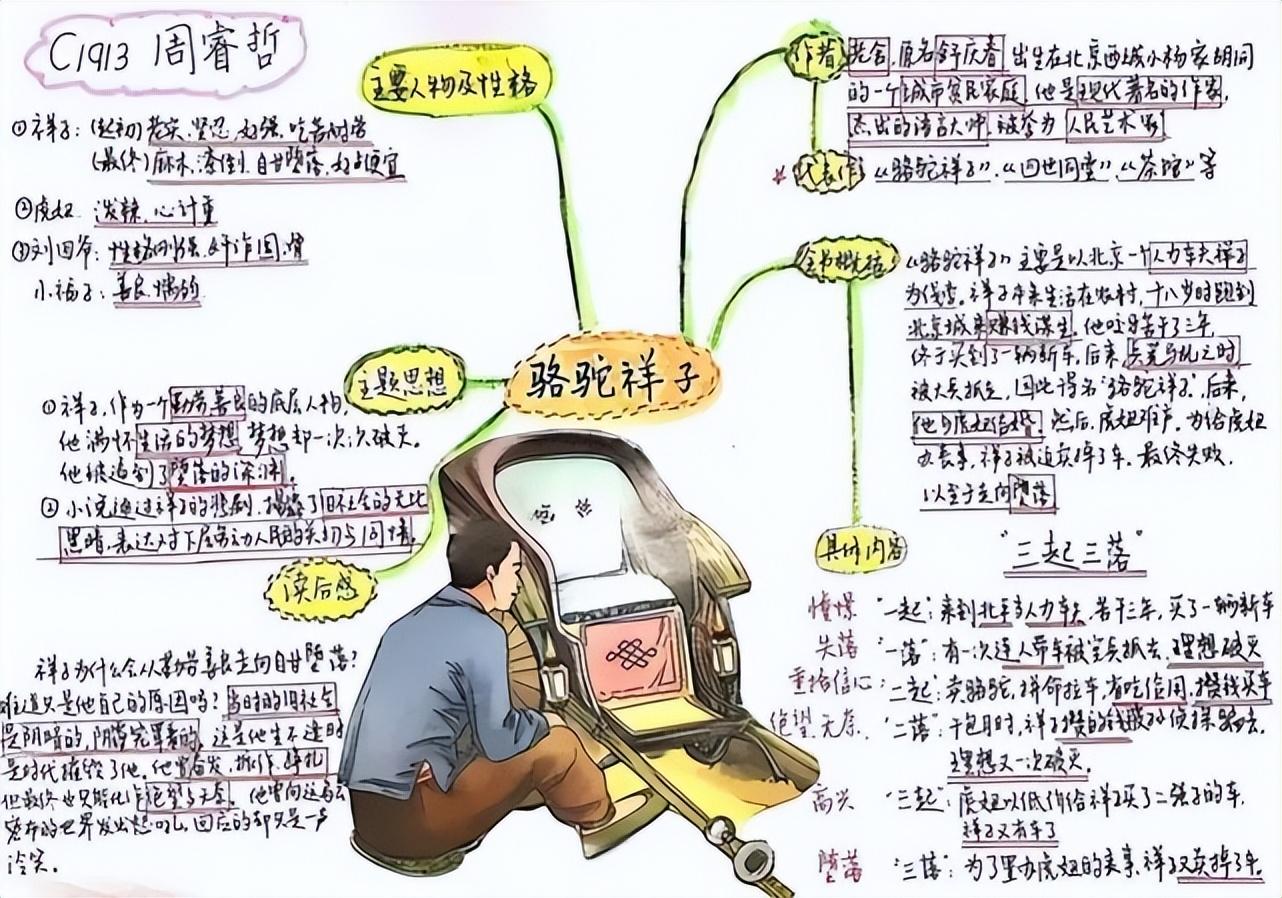 C1913 周睿哲
主要人物及性格
①祥子：(起初)老实、坚忍、好强、吃苦耐劳
(最终)麻木、潦倒、自甘堕落、好占便宜
②虎妞 泼辣、心计重
③刘四爷：性格刚强、奸诈圆滑
小福子：善良、懦弱
作者
老舍，原名舒庆春 出生在北京西城小杨家胡同
的一个城市贫民家庭，他是现代著名的作家，
杰出的语言大师，被誉为 人民艺术家
代表作
《骆驼祥子》、《四世同堂》、《茶馆》等
全书概括
《骆驼祥子》主要是以北京一个人力车夫祥子
为线索。祥子本来生活在农村，十八岁时跑到
北京城来赚钱谋生。他咬牙苦干了三年，
终于买到了一辆新车，后来，兵荒马乱之时，
被大兵抓走，因此得名“骆驼祥子”，后来，
他与虎妞结婚，然后，虎妞难产。为给虎妞
办丧事，祥子被迫卖掉了车。最终失败，
以至于走向堕落
骆驼祥子
主题思想
①祥子，作为一个勤劳善良的底层人物，
他满怀生活的梦想，梦想却一次次破灭。
他被逼到了堕落的深渊。
②小说通过祥子的悲剧，揭露了旧社会的无比
黑暗，表达对下层劳动人民的关切与同情。
读后感
祥子为什么会从勤劳善良走向自甘堕落？
难道只是他自己的原因吗？当时的旧社会
是阴暗的，阴霾笼罩着的，这是他生不逢时
是时代摧毁了他。他曾奋发，拼作，挣扎
但最终也只能化作绝望与无奈。他曾向这乌云
密布的世界发出怒吼，回应的却只是一声
冷笑。
具体内容
“三起三落”
憧憬 “一起”：来到北平当人力车夫，苦干三年，买了一辆新车
失落 “一落”：有一次连人带车被宪兵抓去，理想破灭
重拾信心：二起：卖骆驼，拼命拉车，省吃俭用，攒钱买车
绝望、无奈、“二落”：干包月时，祥子攒的钱被孙侦探骗去，
理想又一次破灭。
高兴 “三起”：虎妞以低价给祥子买了二强子的车，
祥子又有车了
堕落 “三落”：为了置办虎妞的丧事，祥子又卖掉了车。